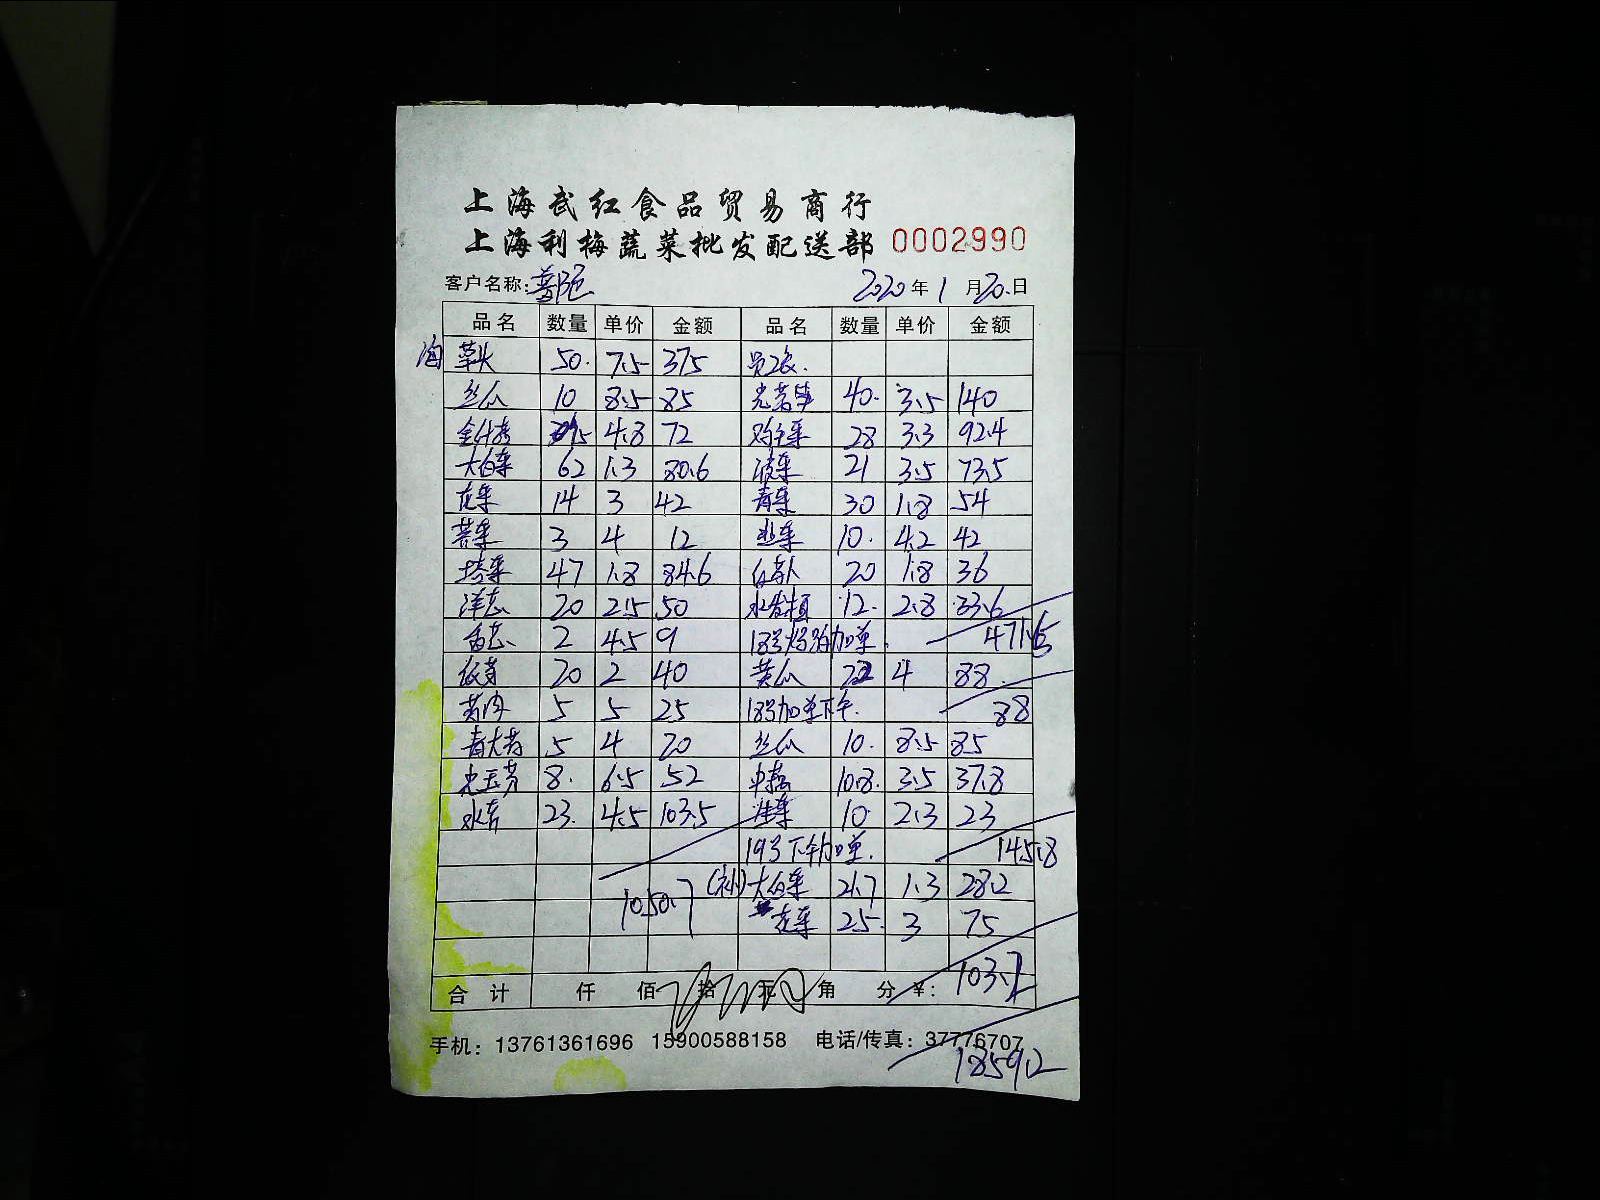 上海武红食品贸易商行
上海利梅蔬菜批发配送部 0002990
客户名称: 2020年1月20日
品名 数量 单价 金额 品名 数量 单价 金额
草头 50. 7.5 375
丝瓜 10 8.5 85 40. 3.5 140
4.8 72 28 3.3 92.4
大白菜 62 1.3 80.6 菠菜 21 3.5 73.5
花菜 14 3 42 青菜 30 1.8 54
3 4 12 韭菜 10. 4.2 42
塔菜 47 1.8 84.6 20 1.8 36
洋葱 20 2.5 50 12. 2.8 33.6
香葱 2 4.5 9 加单. 471.5
20 2 40 黄瓜 22 4 88.
5 5 25 18号加单下午. 88
5 4 20 丝瓜 10. 8.5 85
8. 6.5 52 10.8. 3.5 37.8
水芹 23. 4.5 103.5 10 2.3 23
19号下午加单. 145.8
(补)大白菜 21.7 1.3 28.2
1050.7 花菜 25. 3 75
103.2
合计 仟 佰 拾 元 角 分 ¥:
手机: 13761361696 15900588158 电话/传真: 37776707
1859.2